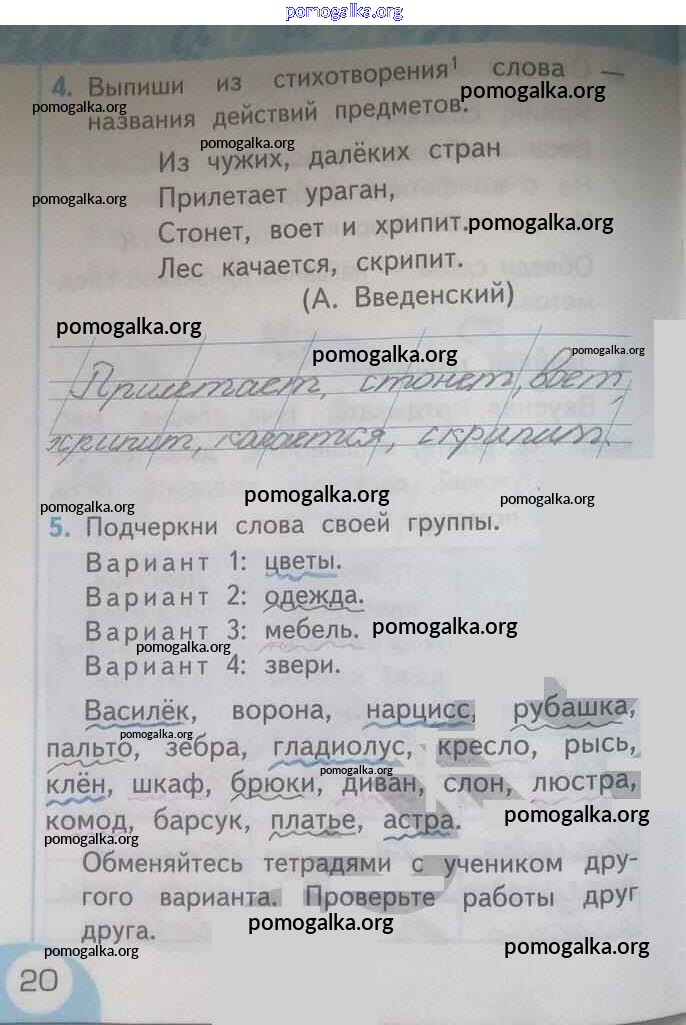 pomogalka.org
4. Выпиши из стихотворения¹ слова —
pomogalka.org
pomogalka.org
названия действий предметов.
pomogalka.org
Из чужих, далёких стран
pomogalka.org
Прилетает ураган,
Стонет, воет и хрипит.
pomogalka.org
Лес качается, скрипит.
(А. Введенский)
pomogalka.org
pomogalka.org
pomogalka.org
Прилетает, стонет, воет,
хрипит, качается, скрипит.
pomogalka.org
pomogalka.org
pomogalka.org
5. Подчеркни слова своей группы.
Вариант 1: цветы.
Вариант 2: одежда.
Вариант 3: мебель.
pomogalka.org
pomogalka.org
Вариант 4: звери.
Василёк, ворона, нарцисс, рубашка,
pomogalka.org
пальто, зебра, гладиолус, кресло, рысь,
pomogalka.org
клён, шкаф, брюки, диван, слон, люстра,
комод, барсук, платье, астра.
pomogalka.org
pomogalka.org
Обменяйтесь тетрадями с учеником дру-
гого варианта. Проверьте работы друг
друга.
pomogalka.org
pomogalka.org
pomogalka.org
20